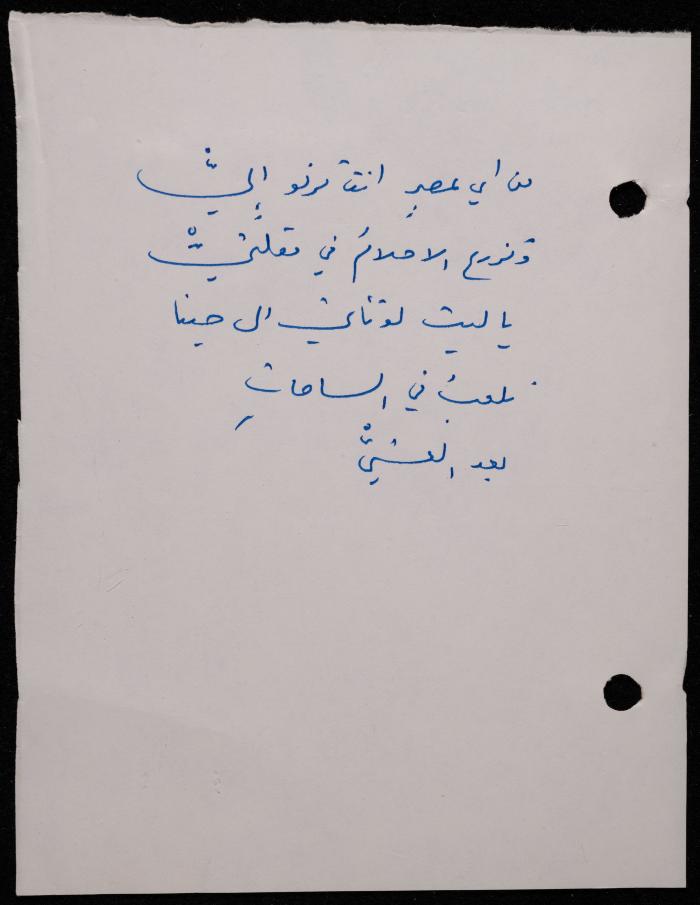 من أي عصرٍ انت ترنو إليّْ
وتزرع الاحلامَ في مقلتيّْ
يا ليت لو تأتي الى حينا
نلعبُ في الساحاتِ
بعد العشيّْ